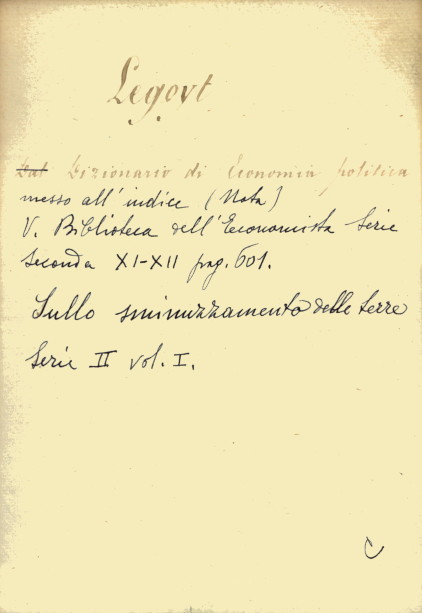 Legoyt
Dal Dizionario di Economia politica
messo all'indice (Nota)
V. Biblioteca dell'Economista Serie
Seconda XI-XII pag. 601.
Sullo sminuzzamento delle terre
Serie II vol. I.
C